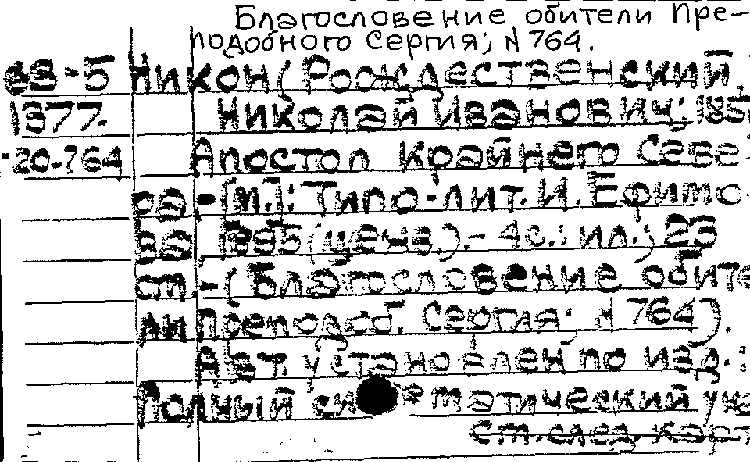 Благословение обители Пре-
подобного Сергия; N 764.
63-5 Никон (Рождественский,
1377. Николай Иванович; 185
20-764 Апостол Крайнего Севе-
ра.-[М.]: Типо-лит. И. Ефимо-
ва, 1895 (ценз.).- 4с.: ил.; 23
см.-(Благословение обите
ли Препοдоб. Сергия; N 764).
Авт. установлен по изд.:
Полный систематический ука
См. след. карт